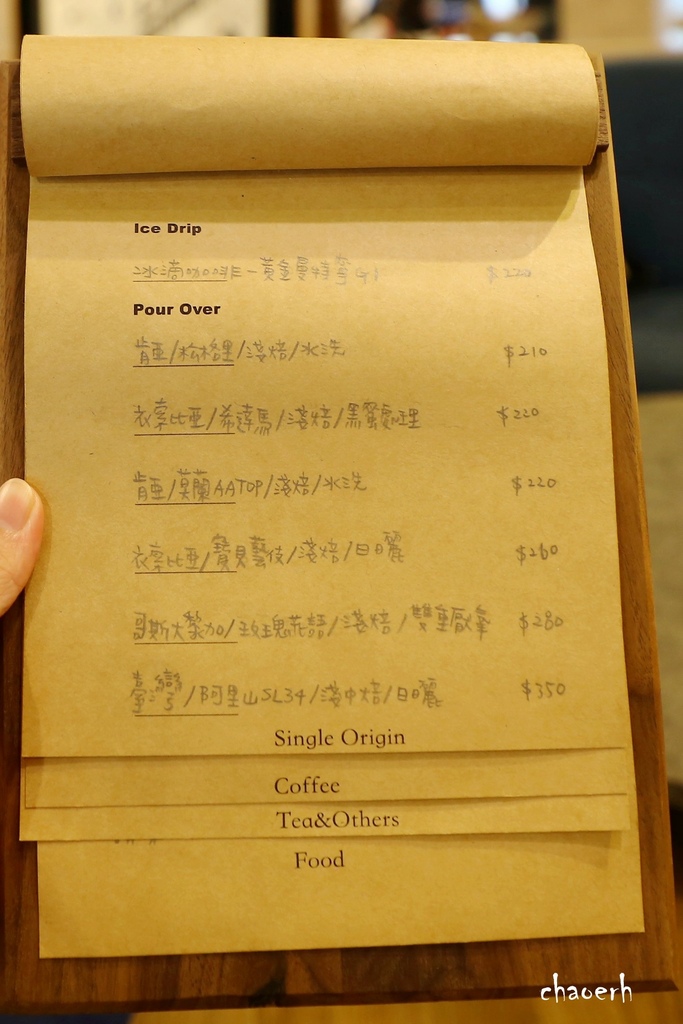 Ice Drip
冰滴咖啡-黃金曼特寧G1 $220
Pour Over
肯亞/松格里/淺焙/水洗 $210
衣索比亞/希達馬/淺焙/黑蜜處理 $220
肯亞/莫蘭AATOP/淺焙/水洗 $220
衣索比亞/寶貝藝伎/淺焙/日曬 $260
哥斯大黎加/玫瑰花語/淺焙/雙重厭氧 $280
臺灣/阿里山SL34/淺中焙/日曬 $350
Single Origin
Coffee
Tea&Others
Food
chaoerh